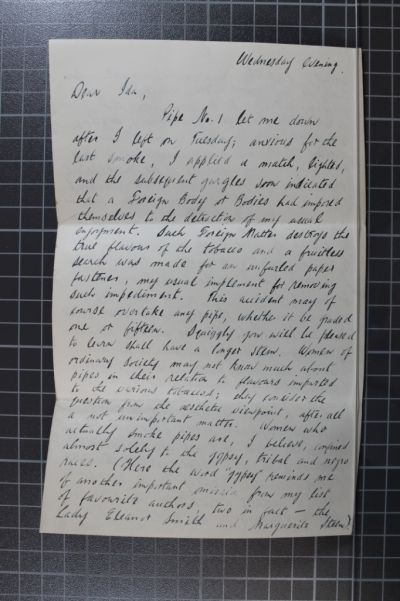 Wednesday evening.
Dear Ida,
Pipe No. 1 let me down
after I left on Tuesday; anxious for the
last smoke, I applied a match, lighted,
and the subsequent gurgles soon indicated
that a Foreign Body or Bodies had imposed
themselves to the detraction of my usual
enjoyment. Such Foreign Matter destroys the
true flavour of the tobacco and a fruitless
search was made for an unfurled paper
fastener, my usual implement for removing
such impediment. This accident may of
course overtake any pipe, whether it be graded
one or fifteen. Squiggly you will be pleased
to learn shall have a longer stem. Women of
ordinary society may not know much about
pipes in their relation to flavours imparted
to the various tobaccos; they consider the
question from the aesthetic viewpoint, after all
a not unimportant matter. Women who
actually smoke pipes are, I believe, confined
almost solely to the gypsy, tribal and negro
races. (Here the word "gypsy" reminds me
of another important omission from my list
of favourite authors, two in fact — the
Lady Eleanor Smith and Marguerite Steen)